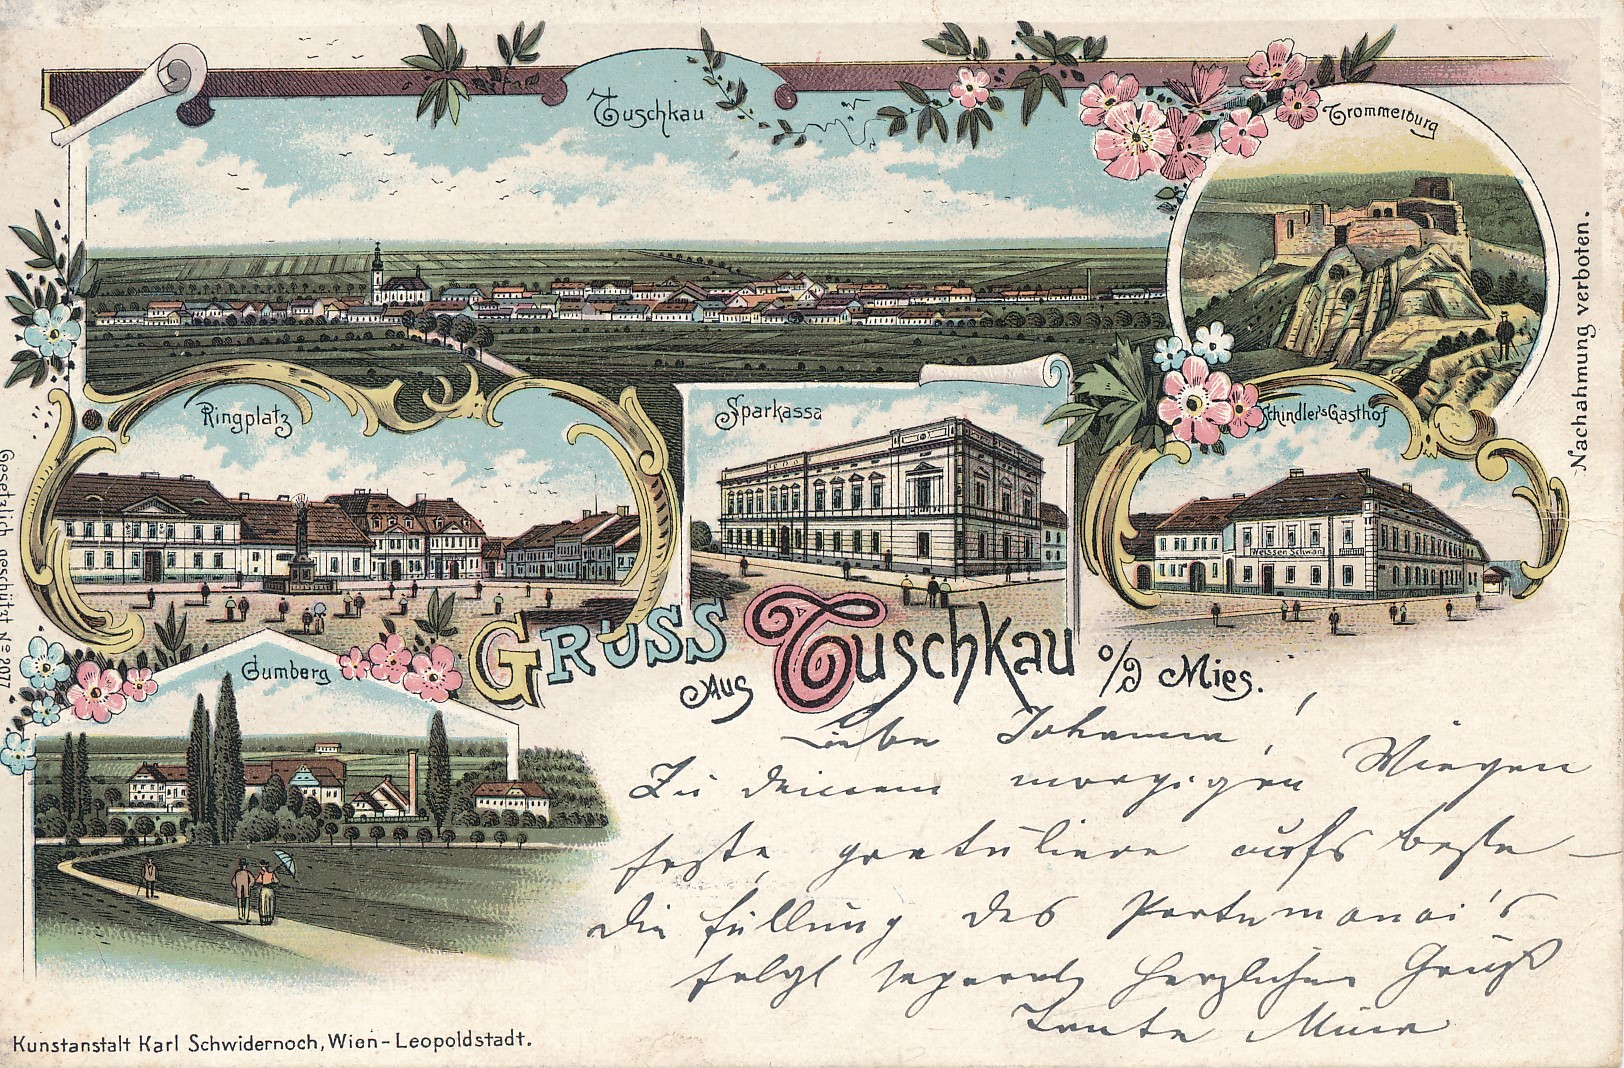 Tuschkau
Trommelburg
Ringplatz
Sparkassa
Schindler's Gasthof
Weissen Schwan
Gumberg
Gruss
aus Tuschkau o/d Mies.
Liebe Johanna!
Zu deinem morgigen Wiegen
feste, gratuliere aufs beste –
die Füllung des Portemonai's
folgt separat, herzlichen Gruß
Tante
Nachahmung verboten.
Gesetzlich geschützt No 2077
Kunstanstalt Karl Schwidernoch, Wien-Leopoldstadt.